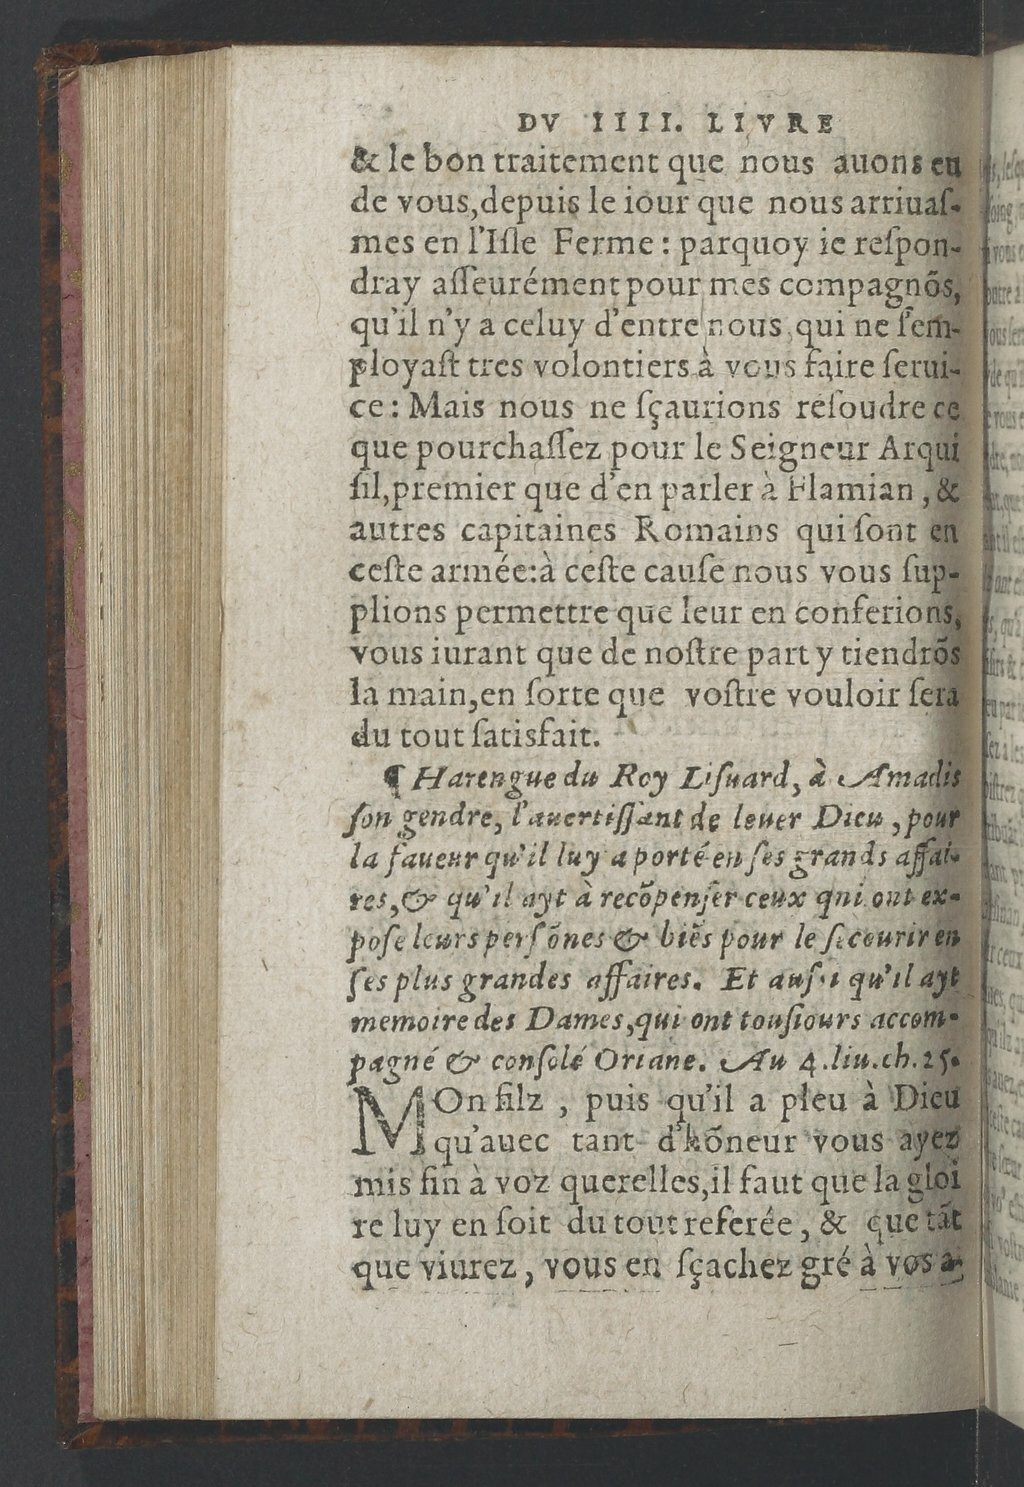 DV IIII. LIVRE
& le bon traitement que nous auons eu
de vous,depuis le iour que nous arriuaſ-
mes en l'Iſle Ferme : parquoy ie reſpon-
dray aſſeurément pour mes compagnõs,
qu'il n'y a celuy d'entre nous,qui ne ſ'em-
ployaſt tres volontiers à vous faire ſerui-
ce : Mais nous ne ſçaurions reſoudre ce
que pourchaſſez pour le Seigneur Arqui
ſil,premier que d'en parler à Flamian , &
autres capitaines Romains qui ſont en
ceſte armée:à ceſte cauſe nous vous ſup-
plions permettre que leur en conferions,
vous iurant que de noſtre part y tiendrõs
la main,en ſorte que voſtre vouloir ſera
du tout ſatisfait.
¶ Harengue du Roy Liſuard, à Amadis
ſon gendre, l'auertiſſant de louer Dieu , pour
la faueur qu'il luy a porté en ſes grands affai-
res,& qu'il ayt à recõpenſer ceux qni ont ex-
poſe leurs perſõnes & biẽs pour le ſecourir en
ſes plus grandes affaires. Et auſsi qu'il ayt
memoire des Dames,qui ont touſiours accom-
pagné & conſolé Oriane. Au 4.liu.ch.25.
MOn filz , puis qu'il a pleu à Dieu
qu'auec tant d'hõneur vous ayez
mis fin à voz querelles,il faut que la gloi
re luy en ſoit du tout referée , & que tãt
que viurez , vous en ſçachez gré à vos a-